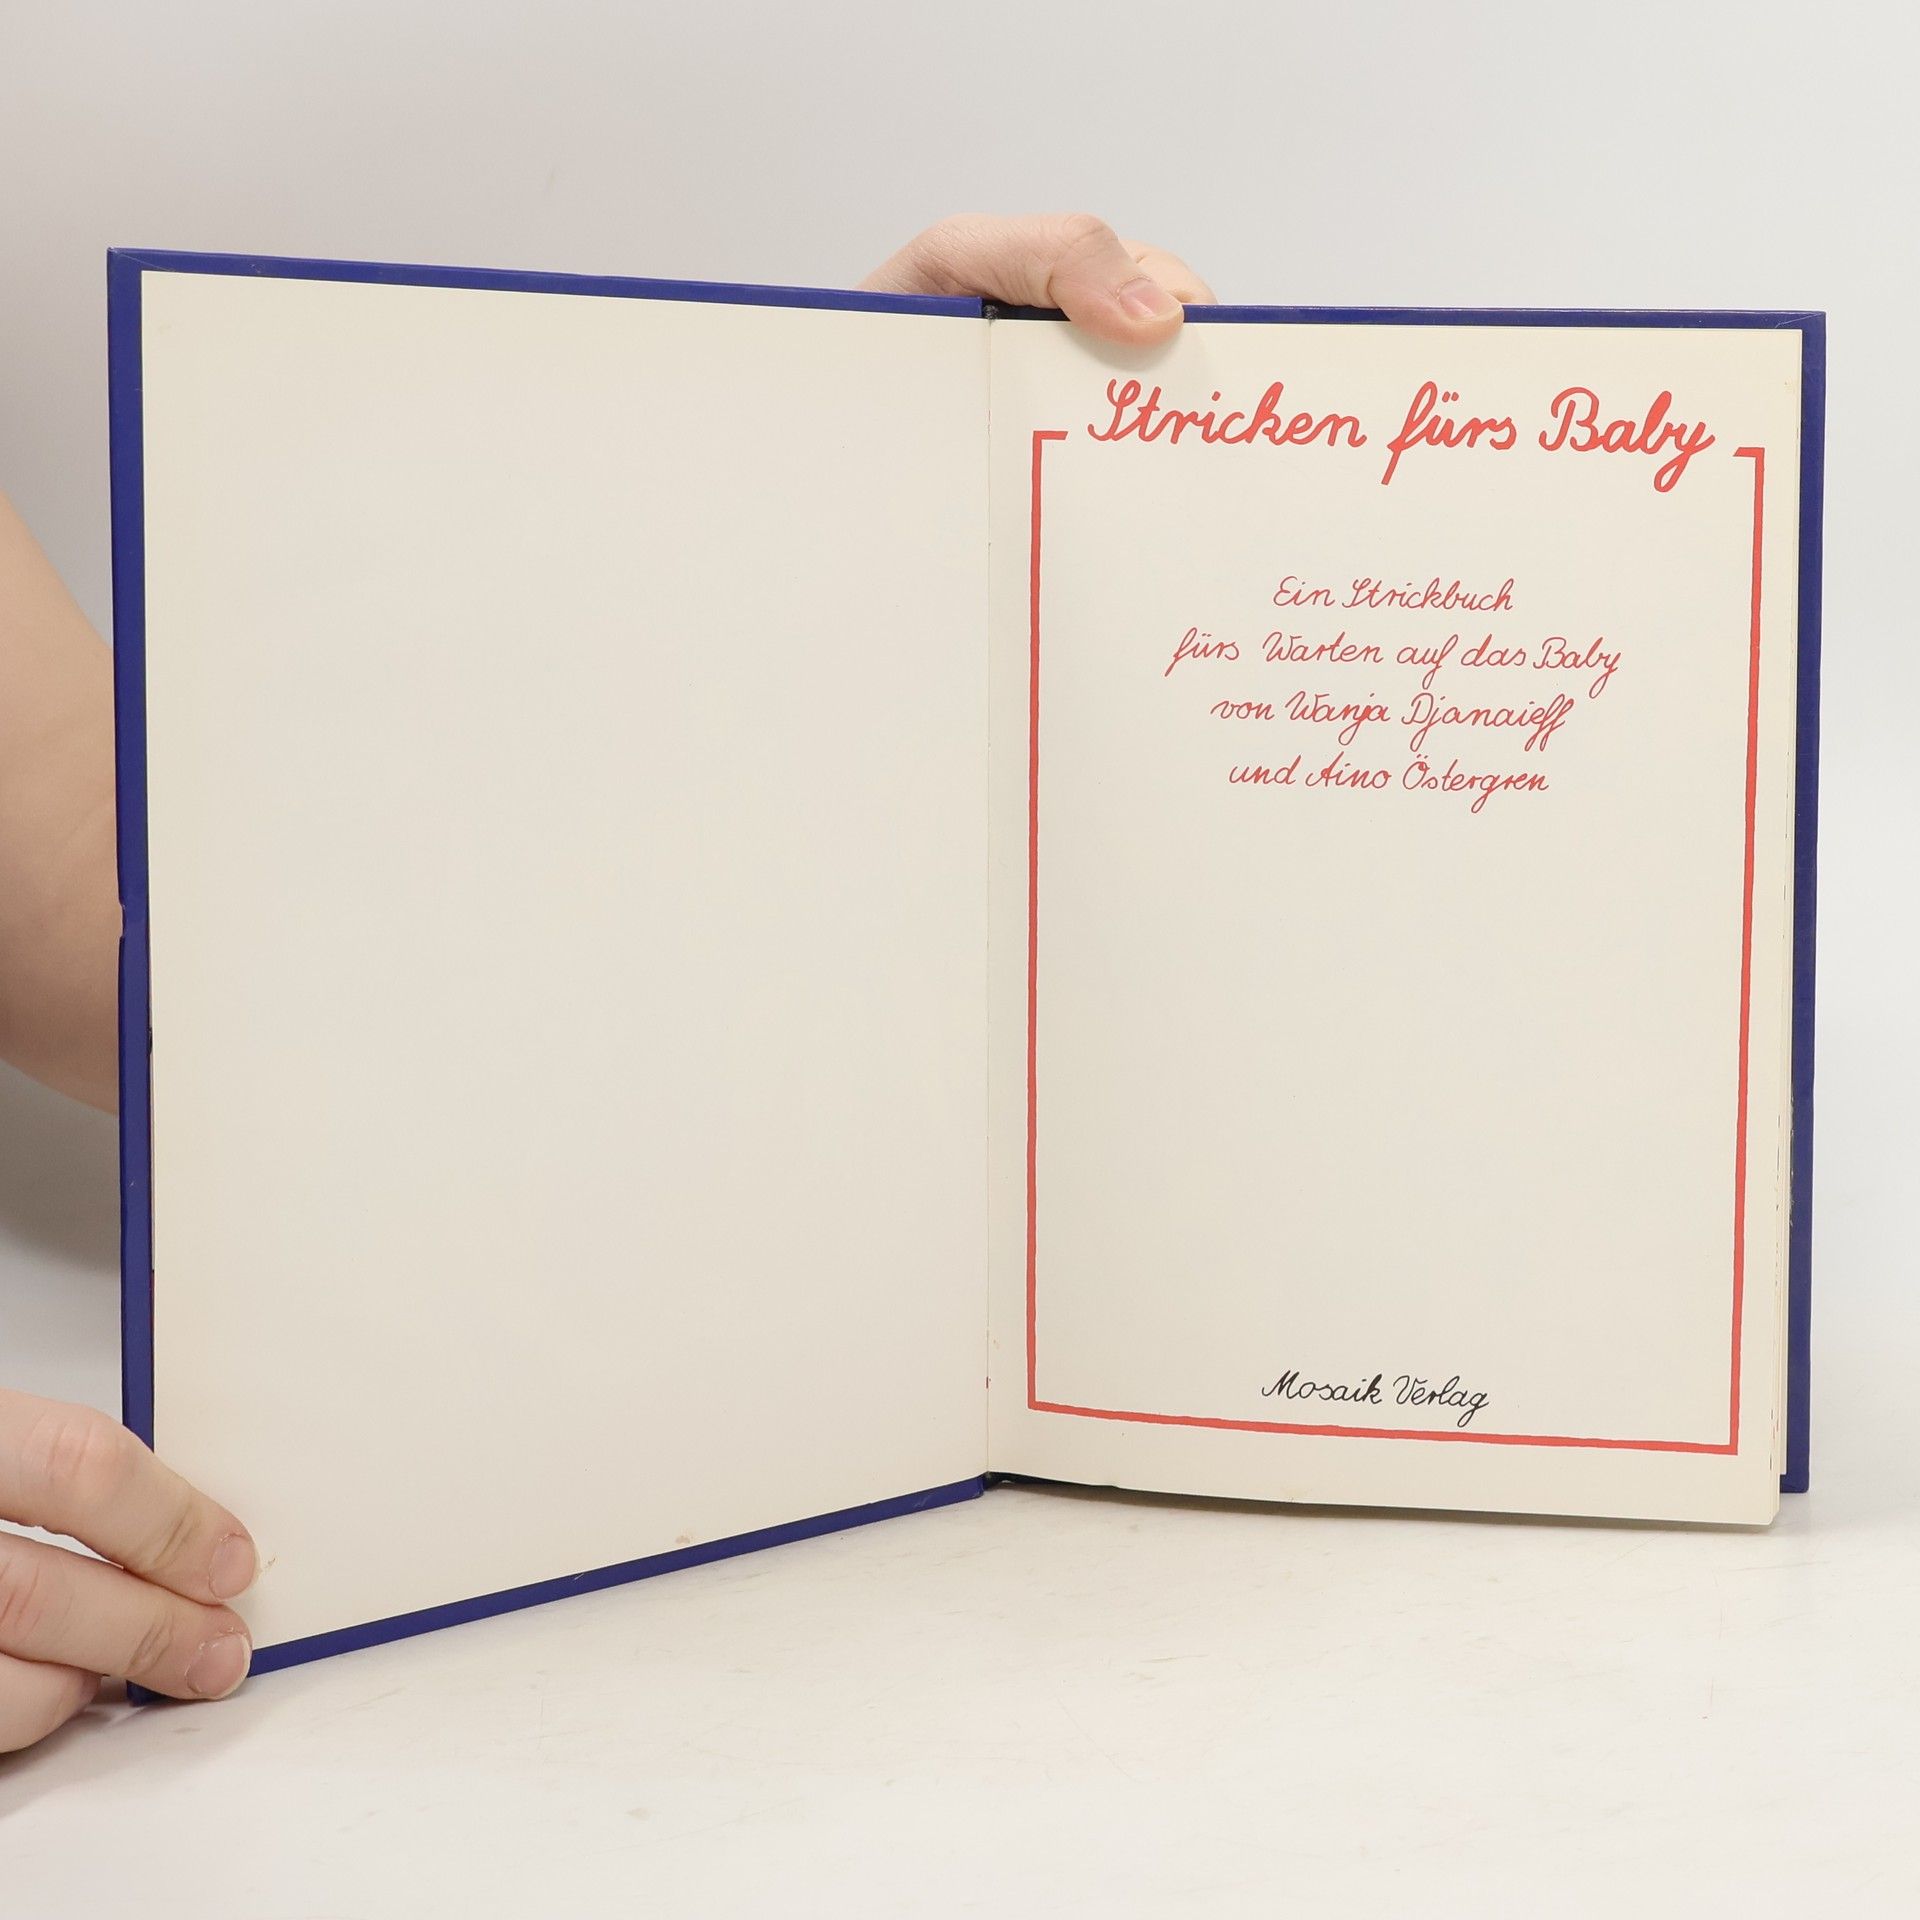 Stricken fürs Baby
Ein Strickbuch
fürs Warten auf das Baby
von Wanja Djanaieff
und Aino Östergren
Mosaik Verlag